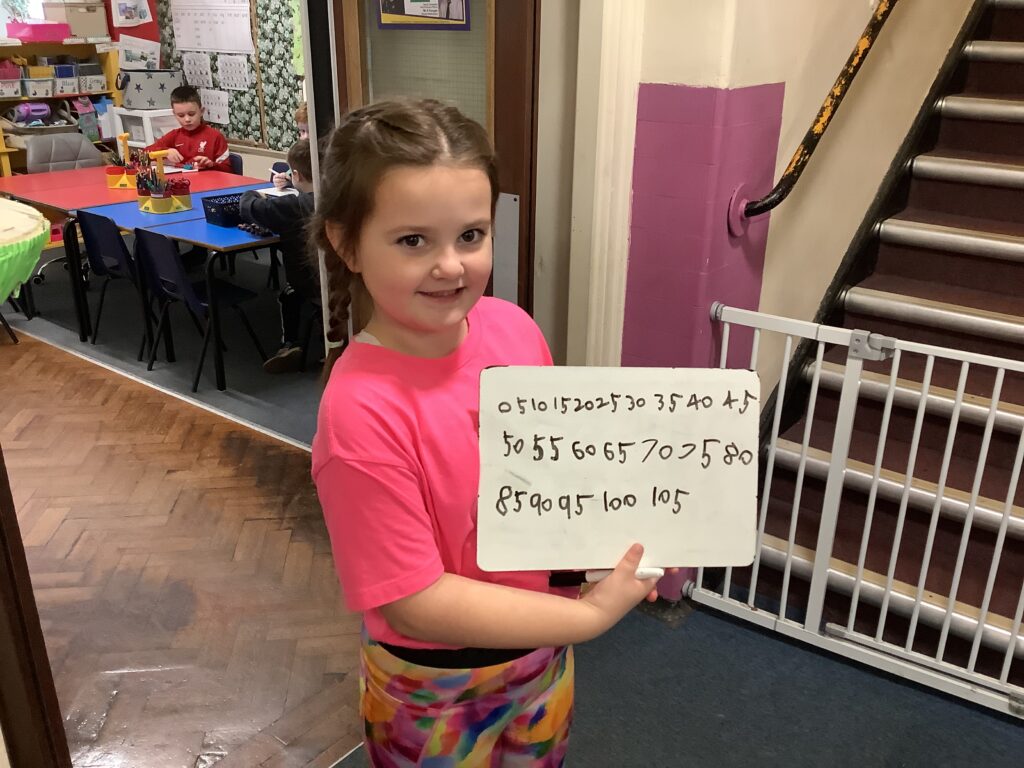 0 5 10 15 20 25 30 35 40 45
50 55 60 65 70 75 80
85 90 95 100 105